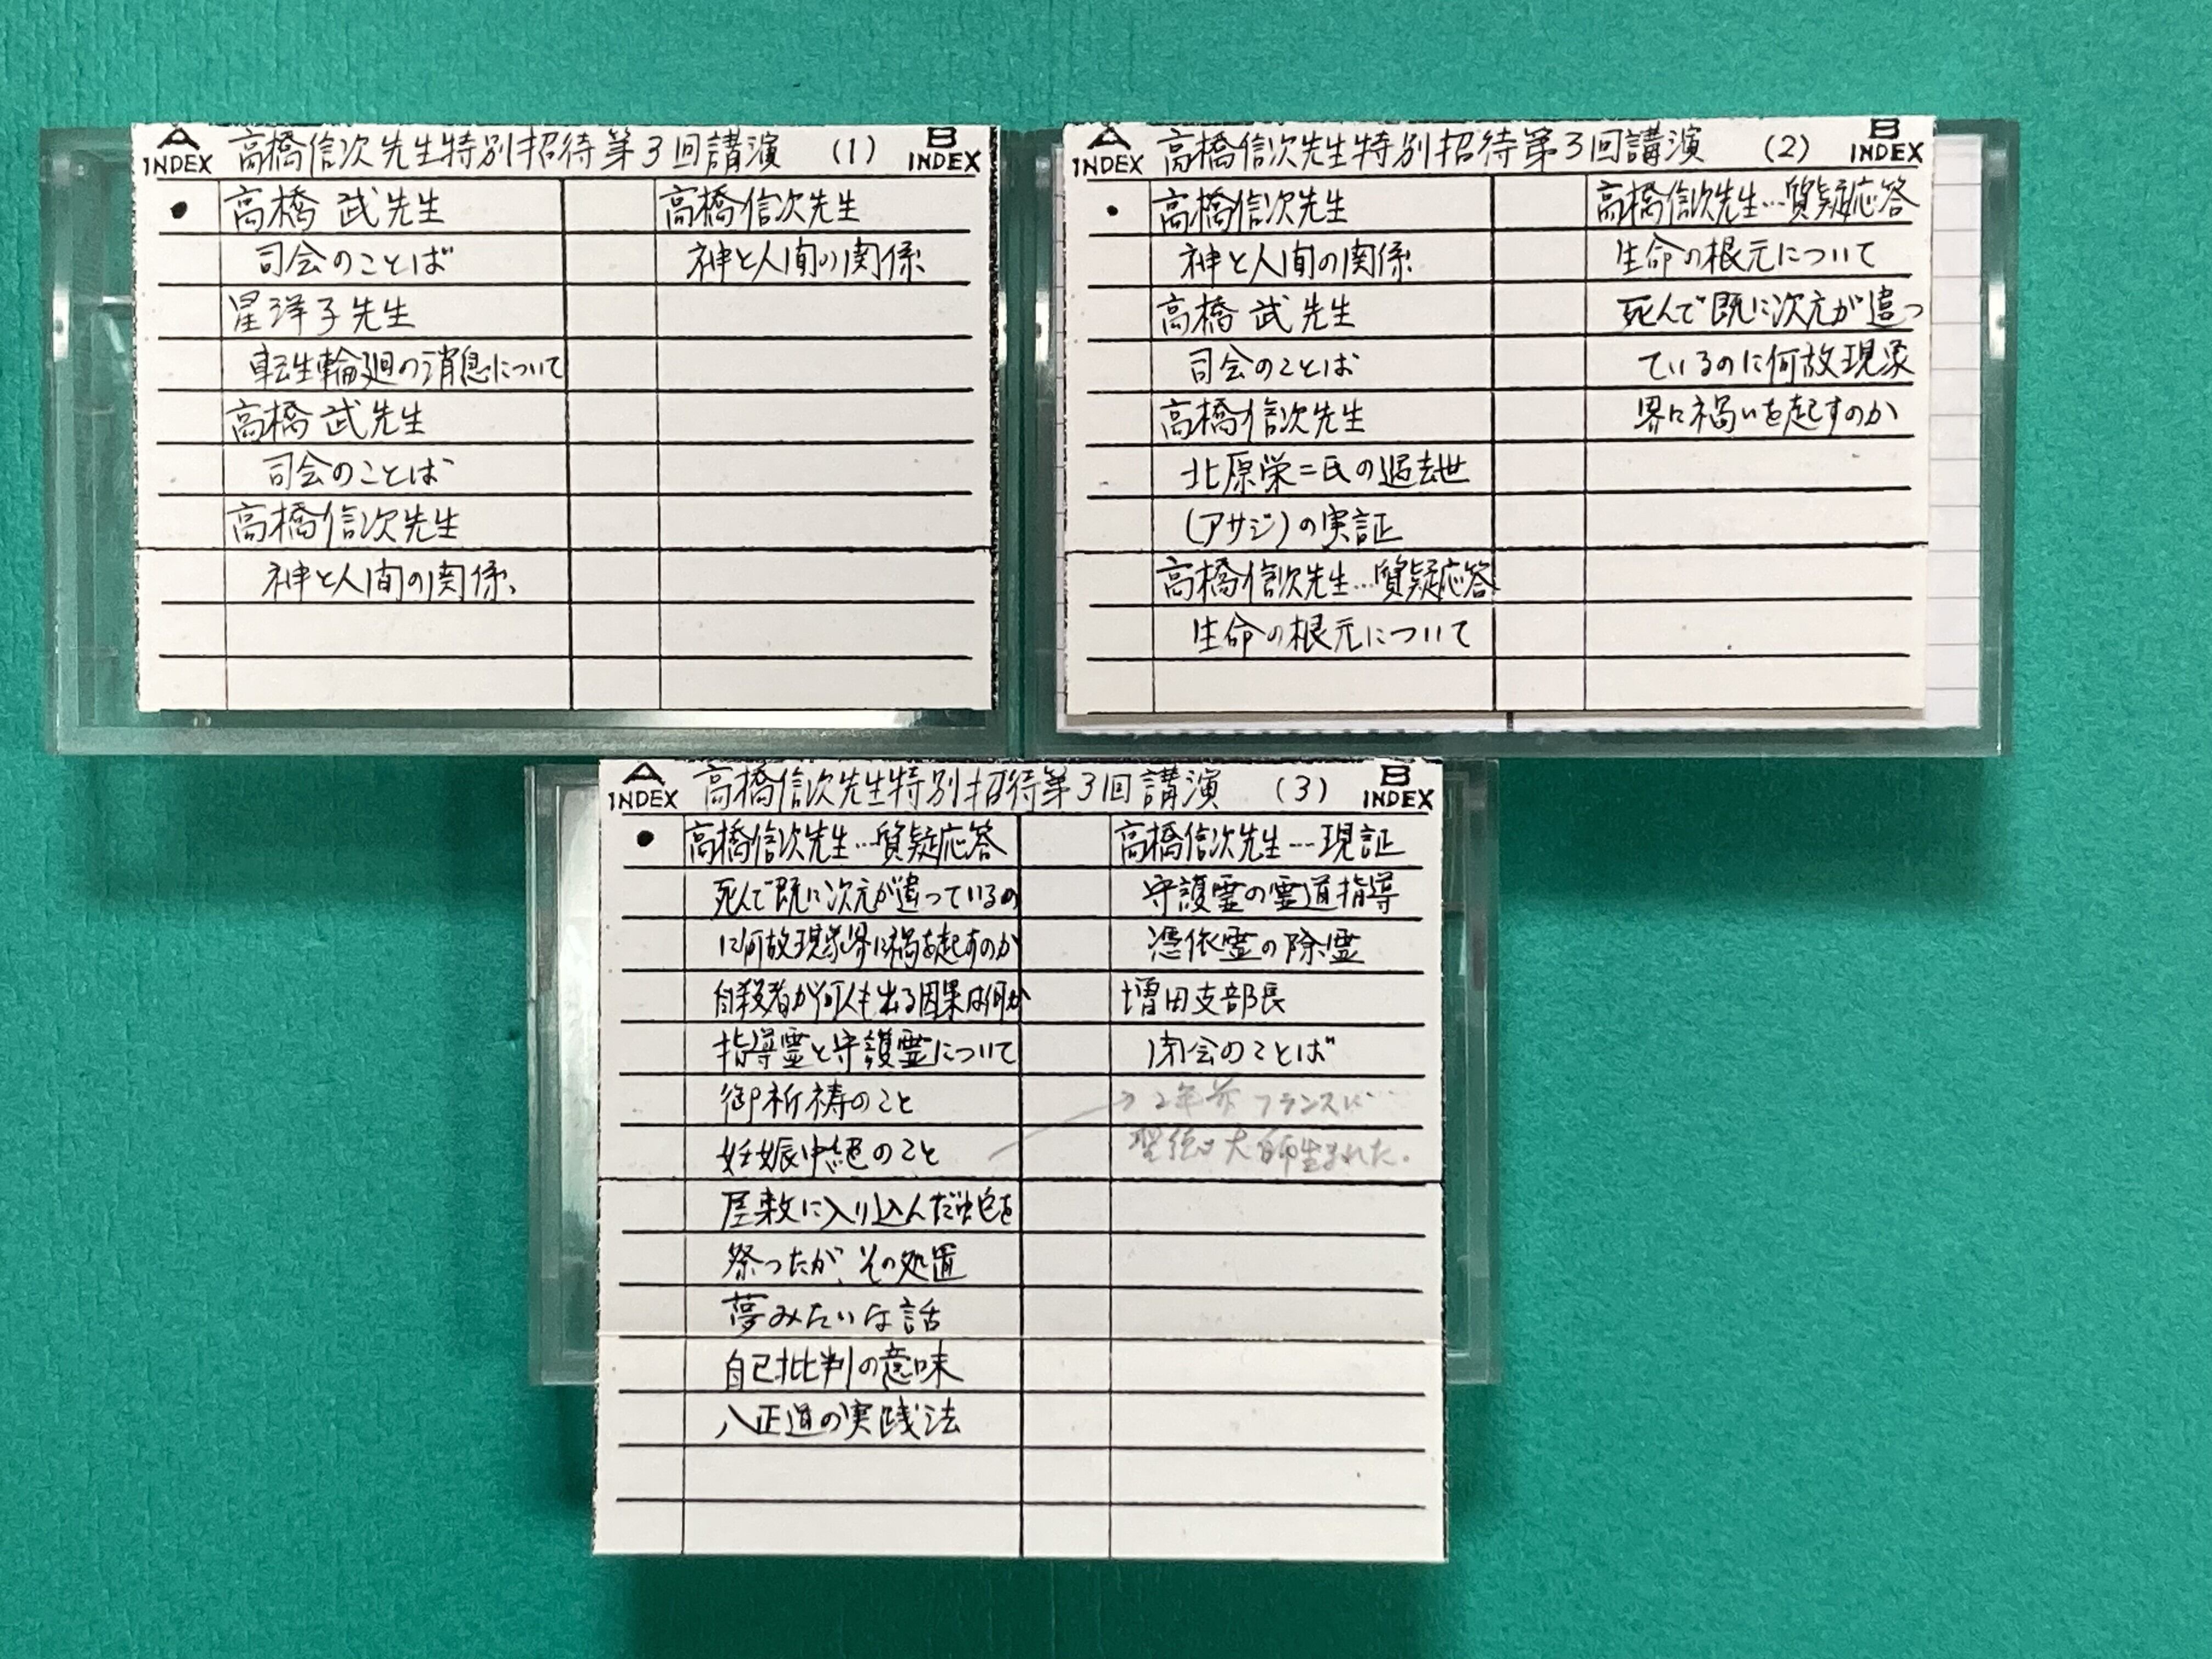 A INDEX 高橋信次先生特別招待第3回講演 (1) B INDEX
高橋 武先生
司会のことば
星洋子先生
転生輪廻の消息について
高橋 武先生
司会のことば
高橋信次先生
神と人間の関係
高橋信次先生
神と人間の関係
A INDEX 高橋信次先生特別招待第3回講演 (2) B INDEX
高橋信次先生
神と人間の関係
高橋 武先生
司会のことば
高橋信次先生
北原栄二氏の過去世
(アサジ)の実証
高橋信次先生…質疑応答
生命の根元について
高橋信次先生…質疑応答
生命の根元について
死んで既に次元が違っ
ているのに何故現象
界に禍いを起すのか
A INDEX 高橋信次先生特別招待第3回講演 (3) B INDEX
高橋信次先生…質疑応答
死んで既に次元が違っているの
に何故現象界に禍を起すのか
自殺者が何人も出る因果は何か
指導霊と守護霊について
御祈祷のこと
妊娠中絶のこと
屋敷に入り込んだ蛇を
祭ったが、その処置
夢みたいな話
自己批判の意味
八正道の実践法
高橋信次先生…現証
守護霊の霊道指導
憑依霊の除霊
増田支部長
閉会のことば
→2年前フランスに…
大師生まれた。